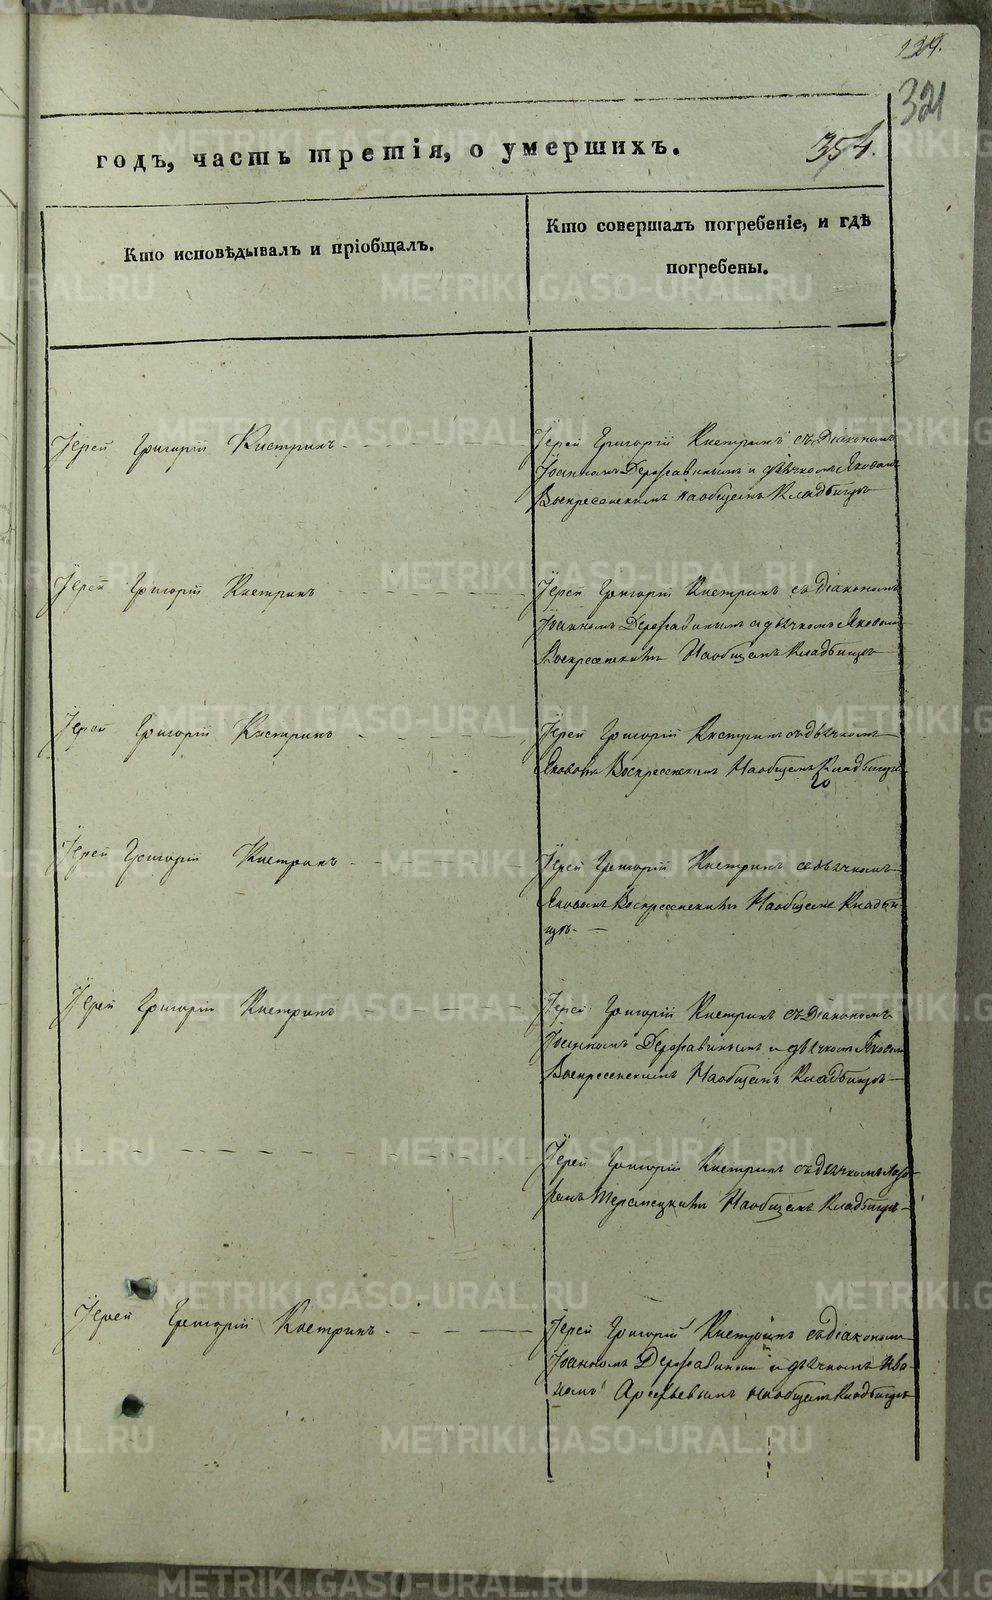 129.
321
годъ, часть третія, о умершихъ.
354.
Кто исповѣдывалъ и пріобщалъ.
Кто совершалъ погребеніе, и гдѣ
погребены.
Іерей Григорій Кистринъ
Іерей Григорій Кистринъ съ Діакономъ
Іоанномъ Державинымъ и дьячкомъ Яковомъ
Воскресенскимъ на общемъ Кладбищѣ
Іерей Григорій Кистринъ
Іерей Григорій Кистринъ съ діакономъ
Іоанномъ Державинымъ и дьячкомъ Яковомъ
Воскресенскимъ На общемъ Кладбищѣ
Іерей Григорій Кистринъ
Іерей Григорій Кистринъ съ дьячкомъ
Яковомъ Воскресенскимъ На общемъ Кладбищѣ
Іерей Григорій Кистринъ
Іерей Григорій Кистринъ съ дьячкомъ
Яковомъ Воскресенскимъ На общемъ Кладби-
щѣ.
Іерей Григорій Кистринъ
Іерей Григорій Кистринъ съ Діакономъ
Іоанномъ Державинымъ и дьячкомъ Яковомъ
Воскресенскимъ На общемъ Кладбищѣ
Іерей Григорій Кистринъ съ дьячкомъ
На общемъ Кладбищѣ
Іерей Григорій Кистринъ
Іерей Григорій Кистринъ съ діакономъ
Іоанномъ Державинымъ и дьячкомъ Ива-
номъ Арсеньевымъ на общемъ Кладбищѣ
METRIKI.GASO-URAL.RU